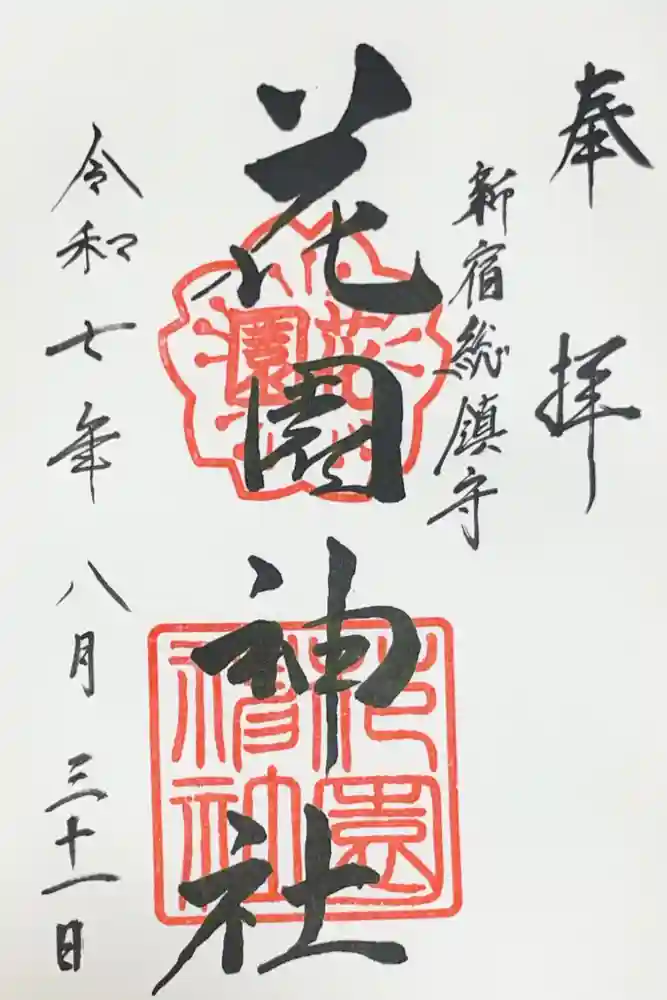 奉拝
新宿総鎮守
花園神社
花園
花園神社
令和七年八月三十一日